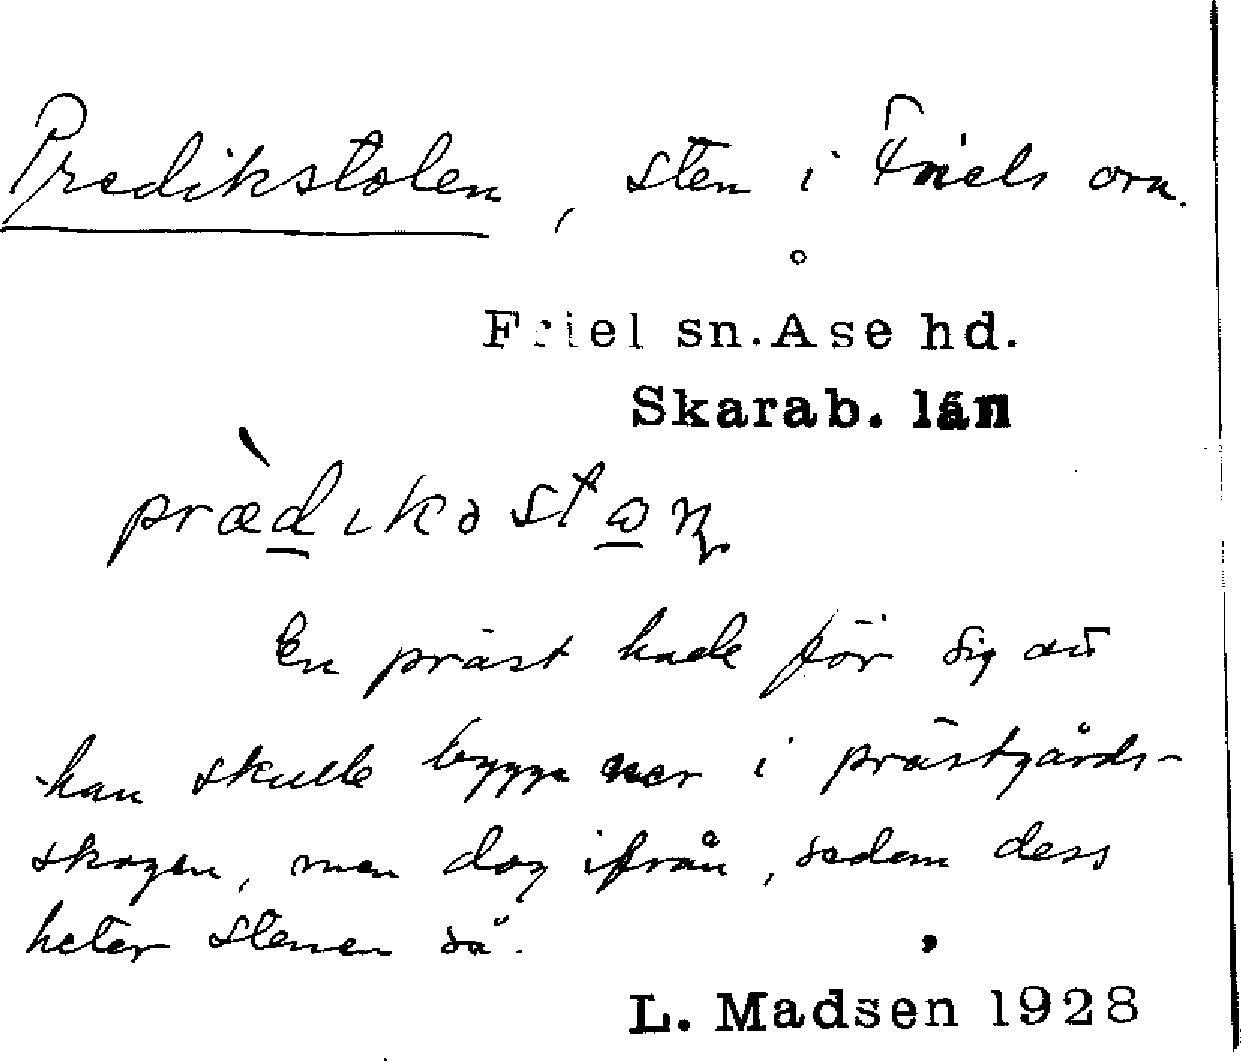 Predikstolen, sten i Friels orn.
Friel sn. Åse hd.
Skarab. län
prædikəstɷn
En präst hade för sig att
han skulle bygga ner i prästgårds-
skogen, men dog ifrån, sedan dess
heter stenen så.
L. Madsen 1928